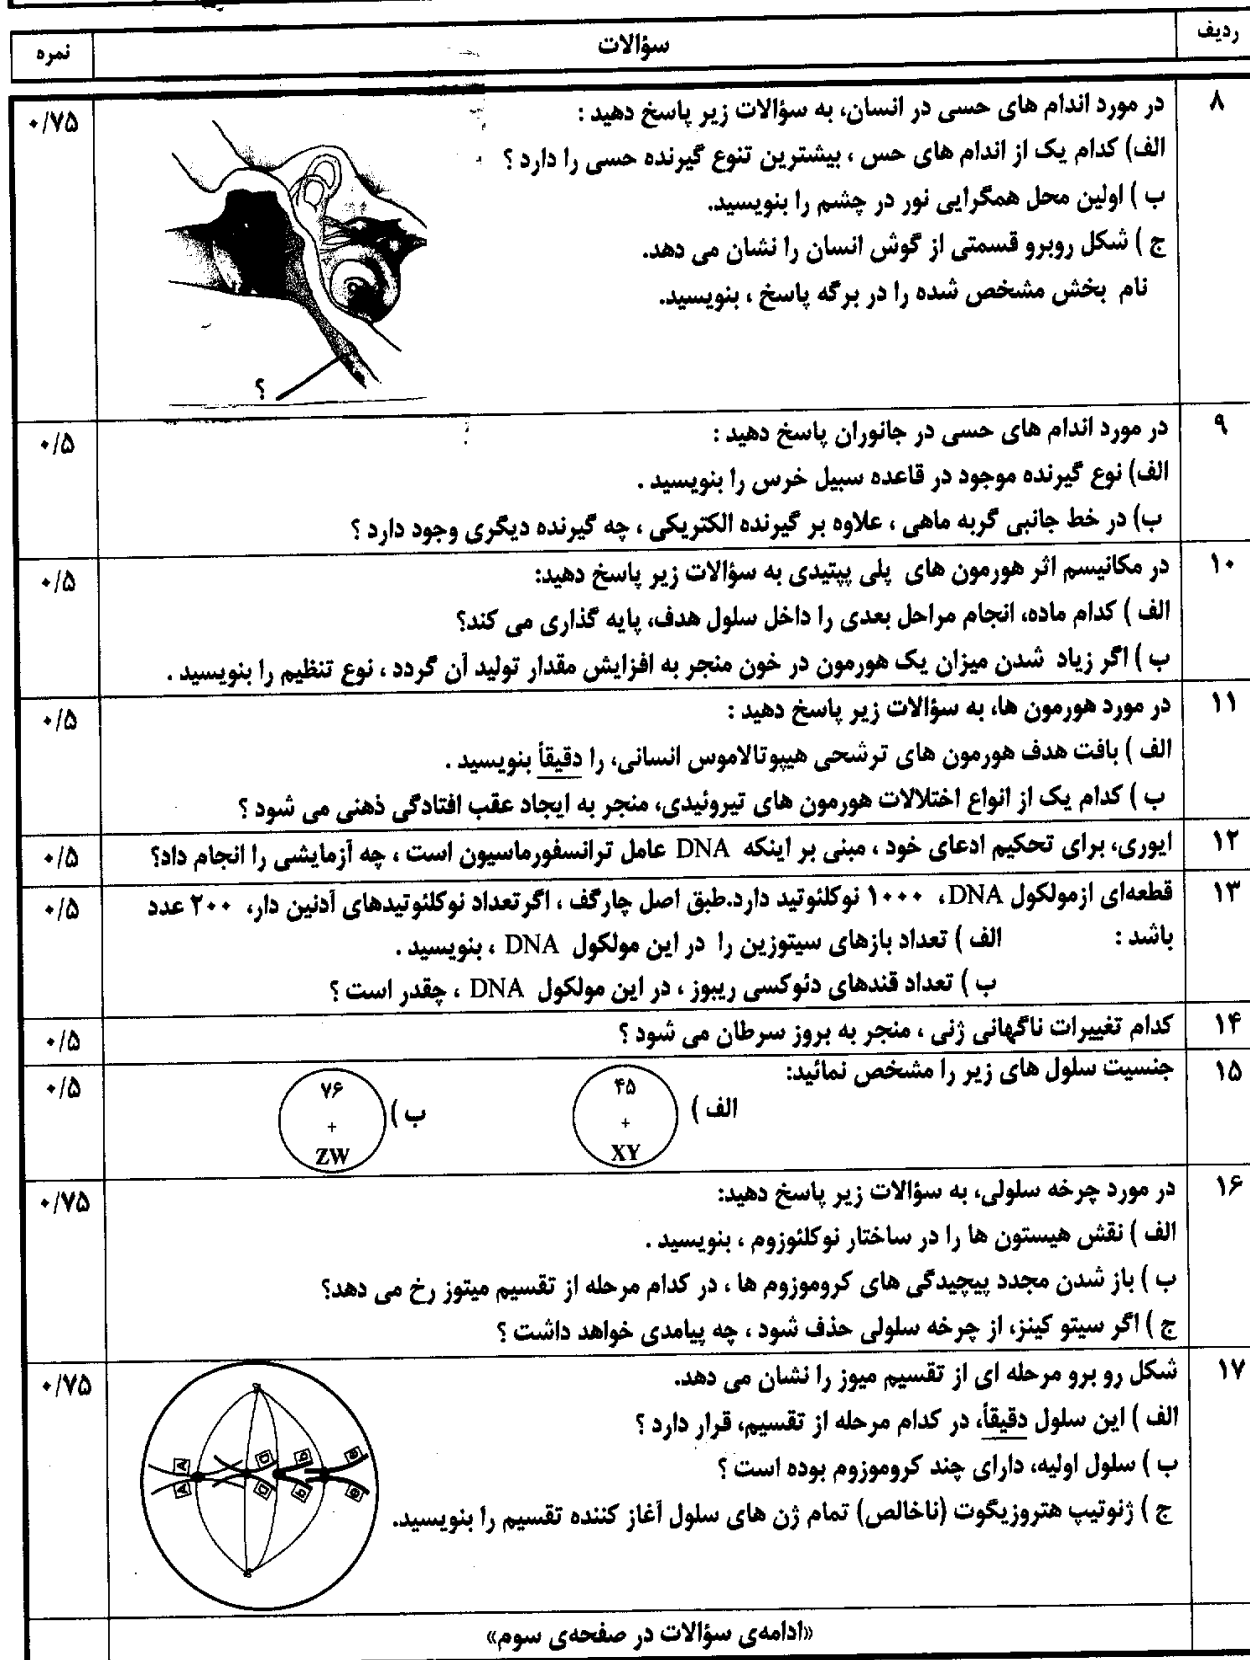 ردیف سؤالات نمره
۸ در مورد اندام های حسی در انسان، به سؤالات زیر پاسخ دهید : ۰/۷۵
الف) کدام یک از اندام های حس ، بیشترین تنوع گیرنده حسی را دارد ؟
ب ) اولین محل همگرایی نور در چشم را بنویسید.
ج ) شکل روبرو قسمتی از گوش انسان را نشان می دهد.
نام بخش مشخص شده را در برگه پاسخ ، بنویسید.
؟
۹ در مورد اندام های حسی در جانوران پاسخ دهید : ۰/۵
الف) نوع گیرنده موجود در قاعده سبیل خرس را بنویسید .
ب) در خط جانبی گربه ماهی ، علاوه بر گیرنده الکتریکی ، چه گیرنده دیگری وجود دارد ؟
۱۰ در مکانیسم اثر هورمون های پلی پپتیدی به سؤالات زیر پاسخ دهید: ۰/۵
الف ) کدام ماده، انجام مراحل بعدی را داخل سلول هدف، پایه گذاری می کند؟
ب ) اگر زیاد شدن میزان یک هورمون در خون منجر به افزایش مقدار تولید آن گردد ، نوع تنظیم را بنویسید .
۱۱ در مورد هورمون ها، به سؤالات زیر پاسخ دهید : ۰/۵
الف ) بافت هدف هورمون های ترشحی هیپوتالاموس انسانی، را دقیقاً بنویسید .
ب ) کدام یک از انواع اختلالات هورمون های تیروئیدی، منجر به ایجاد عقب افتادگی ذهنی می شود ؟
۱۲ ایوری، برای تحکیم ادعای خود ، مبنی بر اینکه DNA عامل ترانسفورماسیون است ، چه آزمایشی را انجام داد؟ ۰/۵
۱۳ قطعه‌ای ازمولکول DNA، ۱۰۰۰ نوکلئوتید دارد.طبق اصل چارگف ، اگرتعداد نوکلئوتیدهای آدنین دار، ۲۰۰ عدد ۰/۵
باشد : الف ) تعداد بازهای سیتوزین را در این مولکول DNA ، بنویسید .
ب ) تعداد قندهای دئوکسی ریبوز ، در این مولکول DNA ، چقدر است ؟
۱۴ کدام تغییرات ناگهانی ژنی ، منجر به بروز سرطان می شود ؟ ۰/۵
۱۵ جنسیت سلول های زیر را مشخص نمائید: ۰/۵
الف ) ۴۵ + XY
ب ) ۷۶ + ZW
۱۶ در مورد چرخه سلولی، به سؤالات زیر پاسخ دهید: ۰/۷۵
الف ) نقش هیستون ها را در ساختار نوکلئوزوم ، بنویسید .
ب ) باز شدن مجدد پیچیدگی های کروموزوم ها ، در کدام مرحله از تقسیم میتوز رخ می دهد؟
ج ) اگر سیتو کینز، از چرخه سلولی حذف شود ، چه پیامدی خواهد داشت ؟
۱۷ شکل رو برو مرحله ای از تقسیم میوز را نشان می دهد. ۰/۷۵
الف ) این سلول دقیقاً، در کدام مرحله از تقسیم، قرار دارد ؟
ب ) سلول اولیه، دارای چند کروموزوم بوده است ؟
ج ) ژنوتیپ هتروزیگوت (ناخالص) تمام ژن های سلول آغاز کننده تقسیم را بنویسید.
«ادامه‌ی سؤالات در صفحه‌ی سوم»